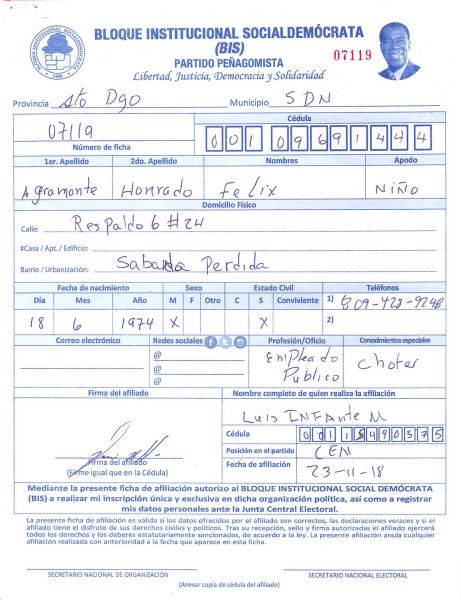 BLOQUE INSTITUCIONAL SOCIALDEMÓCRATA
(BIS)
PARTIDO PEÑAGOMISTA
Libertad, Justicia, Democracia y Solidaridad
07119
Provincia Sto Dgo Municipio SDN
07119
Número de ficha
Cédula
001 0969144 4
1er. Apellido 2do. Apellido Nombres Apodo
Agramonte Honrado Felix NIÑO
Domicilio Físico
Calle: Respaldo 6 #24
#Casa / Apt. / Edificio:
Barrio / Urbanización: Sabana Perdida
Fecha de nacimiento Sexo Estado Civil Teléfonos
Día Mes Año M F Otro C S Conviviente 1) 809-423-9248
18 6 1974 X X 2)
Correo electrónico Redes sociales Profesión/Oficio Conodimientos especiales
@
@
@
Empleado Publico
Chofer
Firma del afiliado Nombre completo de quien realiza la afiliación
Luis INFANTE M
Cédula
Firma del afiliado
(Firme igual que en la Cédula)
Posición en el partido CEN
Fecha de afiliación 23-11-18
Mediante la presente ficha de afiliación autorizo al BLOQUE INSTITUCIONAL SOCIAL DEMÓCRATA
(BIS) a realizar mi inscripción única y exclusiva en dicha organización política, así como a registrar
mis datos personales ante la Junta Central Electoral.
La presente ficha de afiliación es válida si los datos ofrecidos por el afiliado son correctos, las declaraciones veraces y si el
afiliado tiene el disfrute de sus derechos civiles y políticos. Tras su recepción, sello y firma autorizadas el afiliado ejercerá
todos los derechos y los deberes estatutariamente sancionados, de acuerdo a la ley. La presente afiliación anula cualquier
afiliación realizada con anterioridad a la fecha que aparece en esta ficha.
SECRETARIO NACIONAL DE ORGANIZACIÓN SECRETARIO NACIONAL ELECTORAL
(Anexar copia de cédula del afiliado)